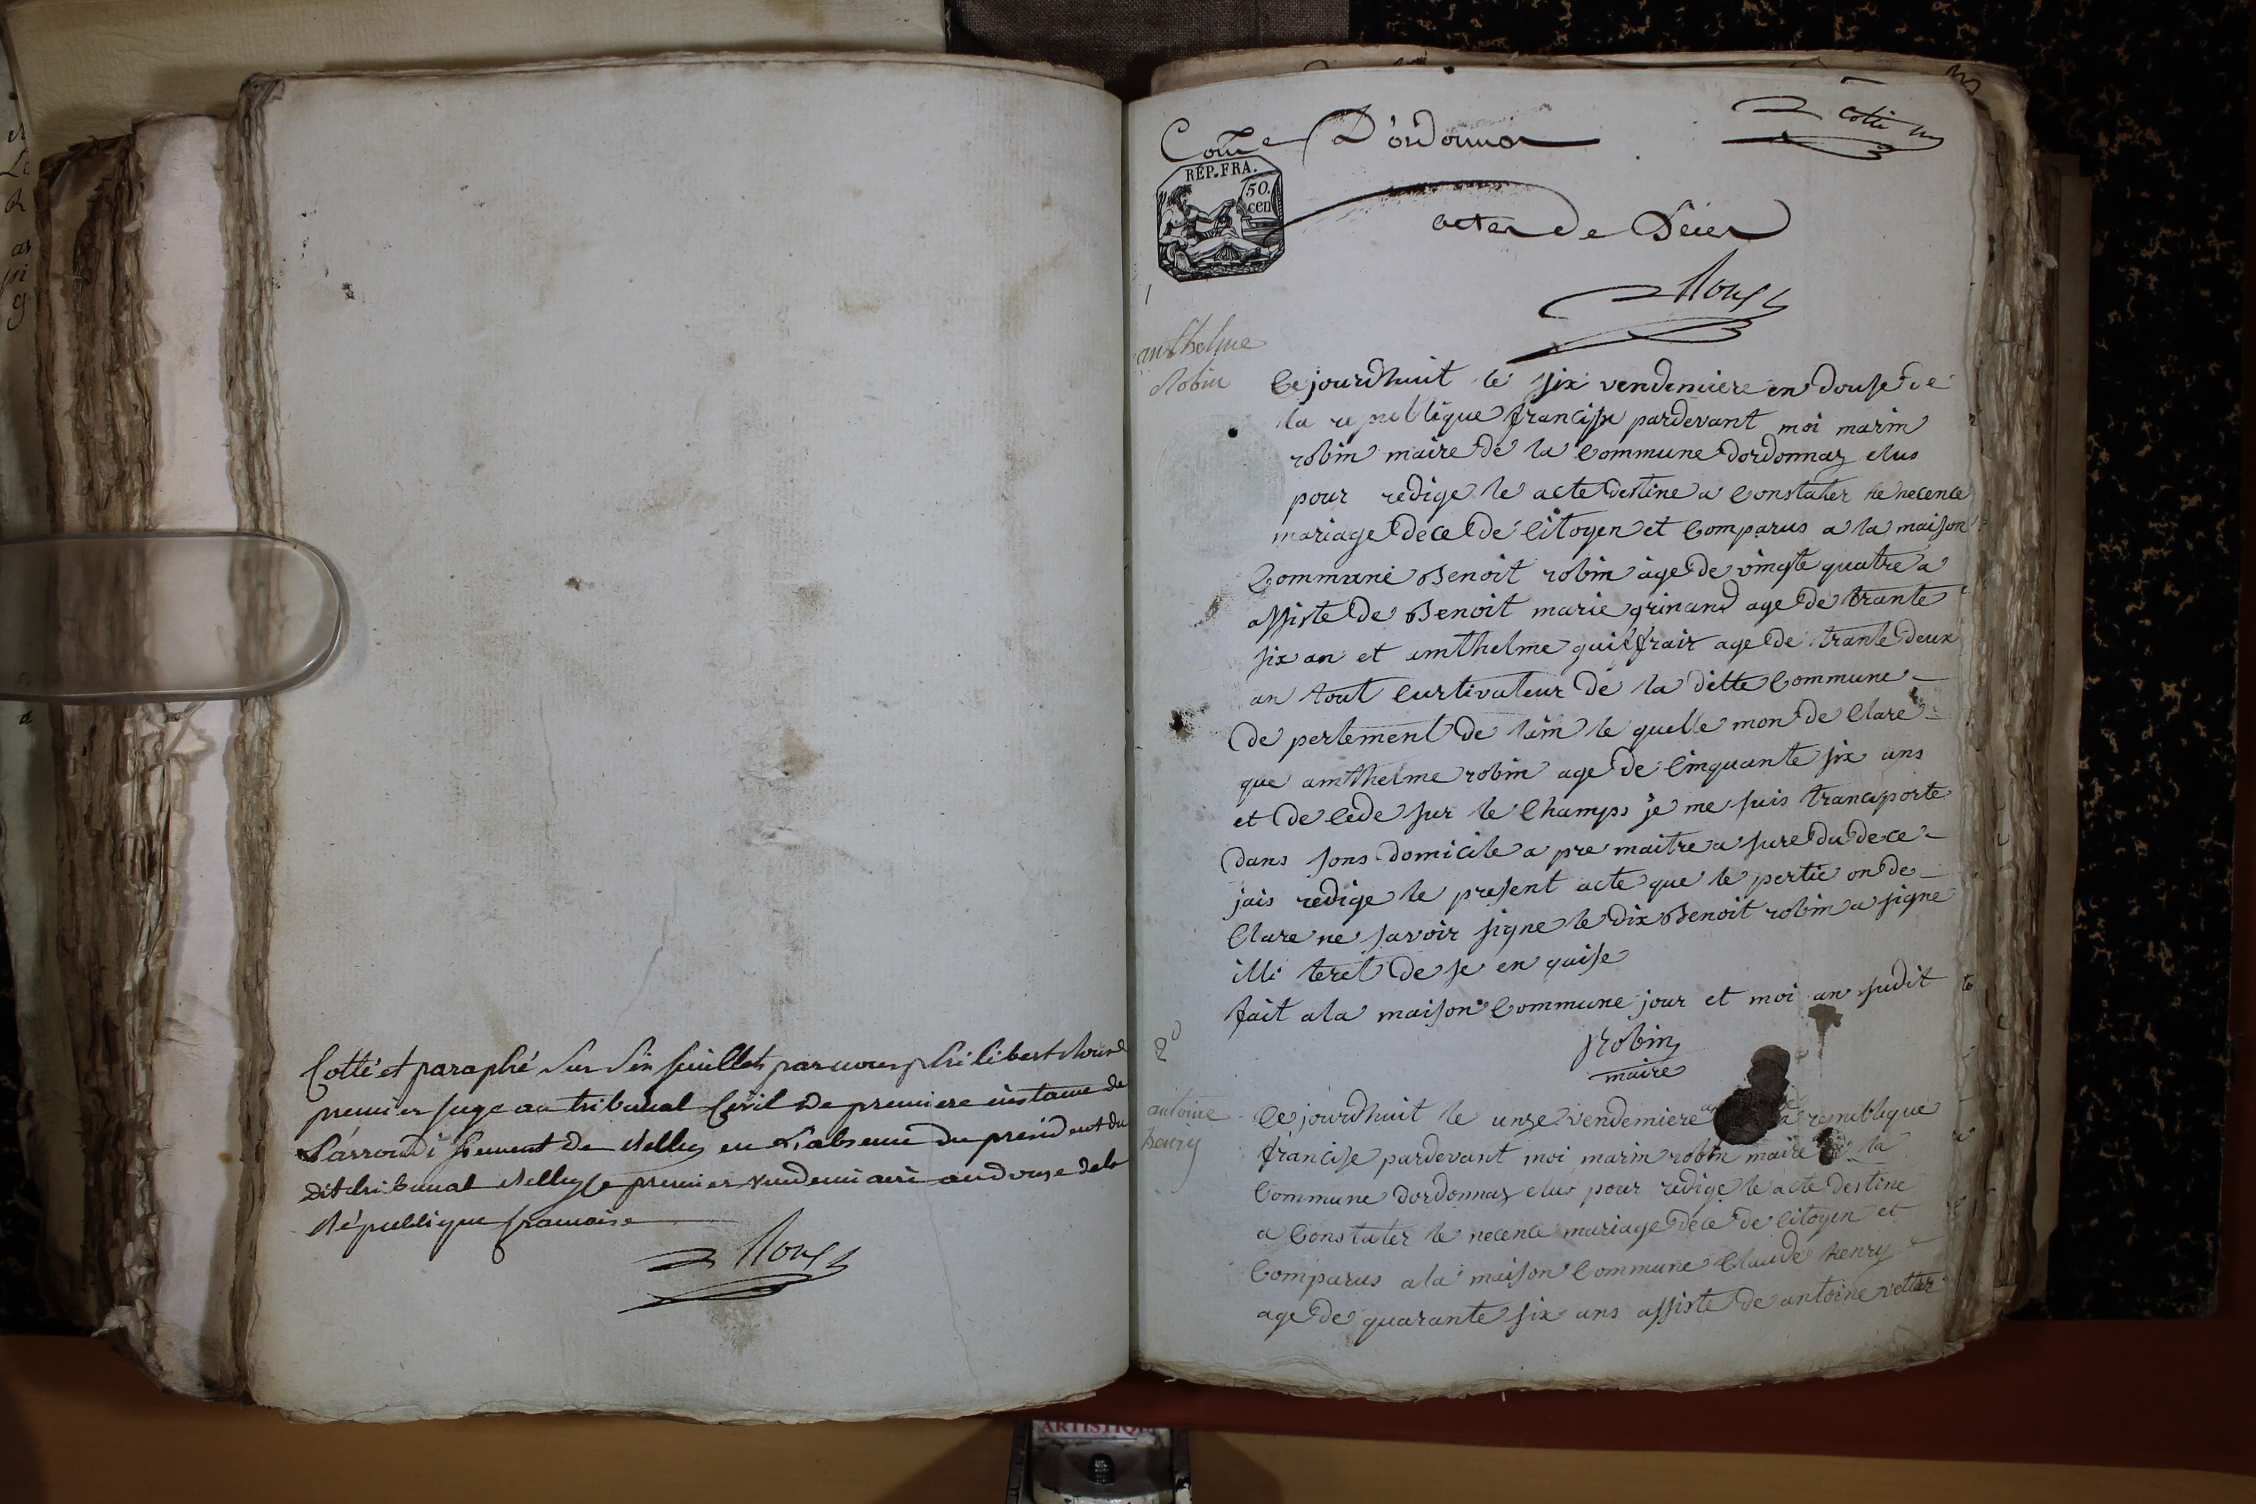 Cotté et paraphé Sur Six feuillets par nous philibert
premier juge au tribunal Civil de premiere instance de
L'arrondissement de Belley en L'absence du president du
dit tribunal Belley le premier vendemiaire an douze de la
République francaise
D'ordonnas
Cotté
RÉP. FRA.
50.
cen
actes de Décès
1
anthelme
Robin
Cejourdhuit le six vendemiere en douse de
la republique francisse pardevant moi marin
robin maire de la Commune dordonnaz elus
pour redige le acte destine a Constater le necence
mariage dece de Citoyen et Comparus a la maison
Commune Benoit robin age de vingte quatre a
assiste de Benoit marie grinand age de trante
six an et amthelme guiffrair age de trante deux
an tout Curtivateur de la ditte Commune
de pertement de lain le quelle mon de Clare
que amthelme robin age de Cinquante six ans
et de Cede sur le Champs je me suis transporte
dans sons domicile a pre maitre a sure du dece
jais redige le present acte que le pertie on de
Clare ne savoir signe le dix Benoit robin a signe
illi teret de se en quise
fait a la maison Commune jour et moi an sudit
Robin
maire
2
antoine
henry
Cejourdhuit le unze vendemiere republique
francise pardevant moi marin robin maire la
Commune dordonnaz elus pour redige le acte destine
a Constater le necence mariage dece de Citoyen et
Comparus a la maison Commune Claude henry
age de quarante six ans assiste de antoine